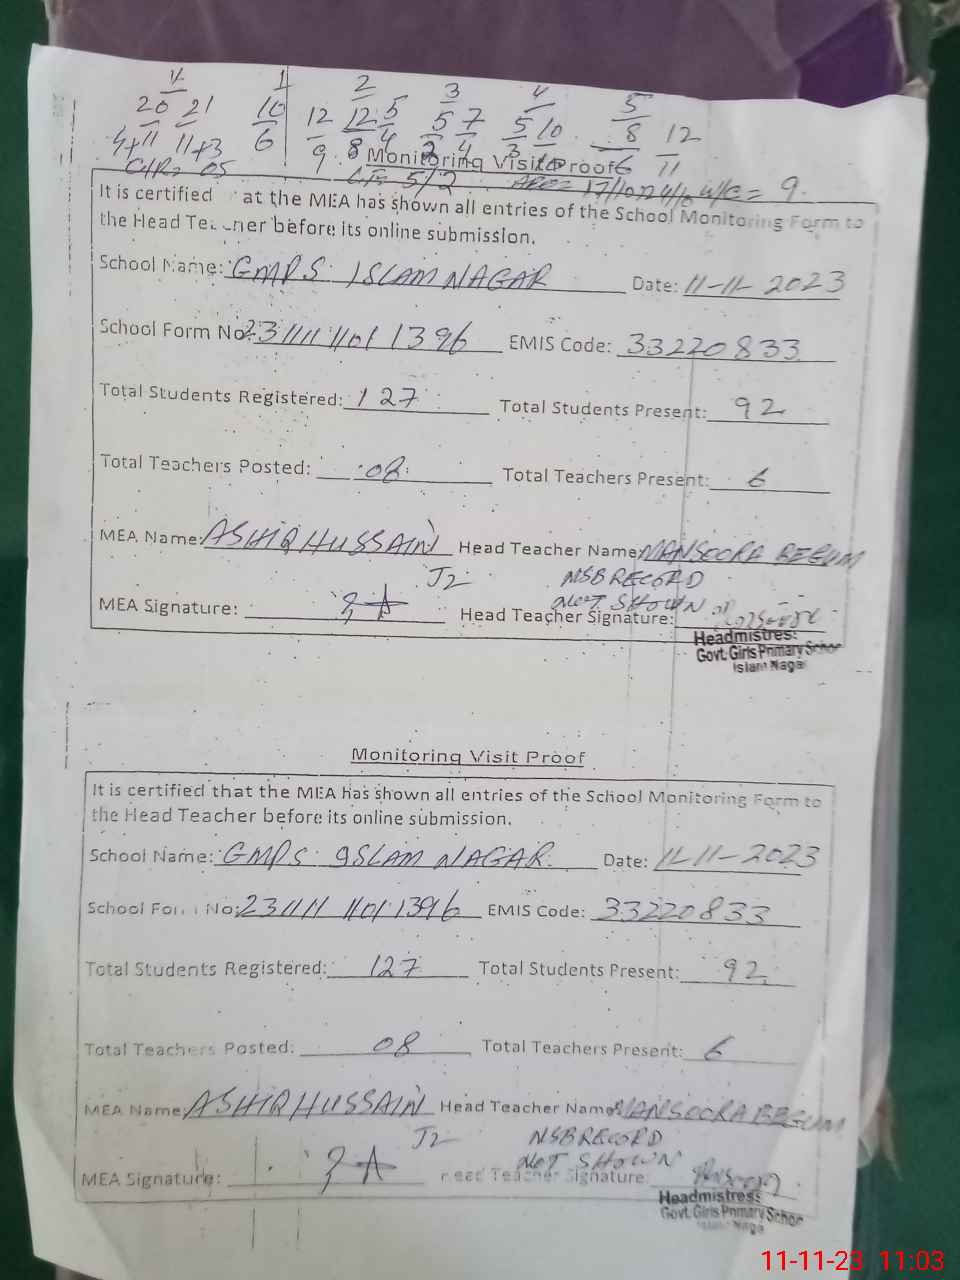 4 1 2 3 4 5
20 21 10 12 12 5 5 7 5 10 8 12
4+11 11+3 6 9 8 4 2 4 3 6 11
05 5/2 = 9.
Monitoring Visit Proof
It is certified at the MEA has shown all entries of the School Monitoring Form to
the Head Teacher before its online submission.
School Name: GMPS ISLAM NAGAR Date: 11-11-2023
School Form No: 231111 1101 1396 EMIS Code: 33220833
Total Students Registered: 127 Total Students Present: 92
Total Teachers Posted: 08 Total Teachers Present: 6
MEA Name: ASHIQ HUSSAIN Head Teacher Name: MANSOORA BEGUM
J2 NSB RECORD
NOT SHOWN
MEA Signature: Head Teacher Signature:
Headmistress
Govt. Girls Primary School
Islam Nagar
Monitoring Visit Proof
It is certified that the MEA has shown all entries of the School Monitoring Form to
the Head Teacher before its online submission.
School Name: GMPS ISLAM NAGAR Date: 11-11-2023
School Form No: 231111 1101 1396 EMIS Code: 33220833
Total Students Registered: 127 Total Students Present: 92
Total Teachers Posted: 08 Total Teachers Present: 6
MEA Name: ASHIQ HUSSAIN Head Teacher Name: MANSOORA BEGUM
J2 NSB RECORD
NOT SHOWN
MEA Signature: Head Teacher Signature:
Headmistress
Govt. Girls Primary School
Islam Nagar
11-11-23 11:03